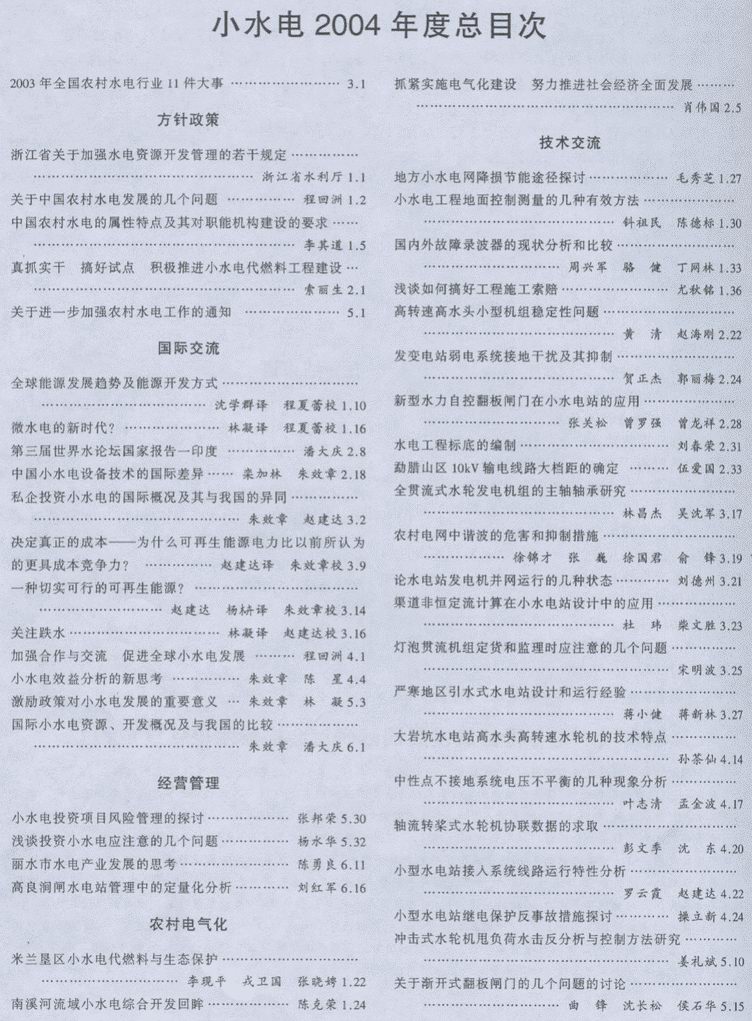 小水电 2004 年度总目次
2003 年全国农村水电行业 11 件大事 ………………… 3.1
方针政策
浙江省关于加强水电资源开发管理的若干规定 ……………
………………………………… 浙江省水利厅 1.1
关于中国农村水电发展的几个问题 …………… 程回洲 1.2
中国农村水电的属性特点及其对职能机构建设的要求 ……
………………………………… 李其道 1.5
真抓实干 搞好试点 积极推进小水电代燃料工程建设 …
………………………………… 索丽生 2.1
关于进一步加强农村水电工作的通知 ………………… 5.1
国际交流
全球能源发展趋势及能源开发方式 …………………
……………………… 沈学群译 程夏蕾校 1.10
微水电的新时代? ……………… 林凝译 程夏蕾校 1.16
第三届世界水论坛国家报告—印度 …………… 潘大庆 2.8
中国小水电设备技术的国际差异 …… 栾加林 朱效章 2.18
私企投资小水电的国际概况及其与我国的异同 ……………
……………………………… 朱效章 赵建达 3.2
决定真正的成本——为什么可再生能源电力比以前所认为
的更具成本竞争力? …………… 赵建达译 朱效章校 3.9
一种切实可行的可再生能源? ………………………
…………………… 赵建达 杨柟译 朱效章校 3.14
关注跌水 ……………………… 林凝译 赵建达校 3.16
加强合作与交流 促进全球小水电发展 ……… 程回洲 4.1
小水电效益分析的新思考 …………… 朱效章 陈 星 4.4
激励政策对小水电发展的重要意义 … 朱效章 林 凝 5.3
国际小水电资源、开发概况及与我国的比较 ………………
……………………………… 朱效章 潘大庆 6.1
经营管理
小水电投资项目风险管理的探讨 ……………… 张邦荣 5.30
浅谈投资小水电应注意的几个问题 …………… 杨水华 5.32
丽水市水电产业发展的思考 ………………… 陈勇良 6.11
高良涧闸水电站管理中的定量化分析 ………… 刘红军 6.16
农村电气化
米兰垦区小水电代燃料与生态保护 …………………
…………………… 李现平 戎卫国 张晓娉 1.22
南溪河流域小水电综合开发回眸 ……………… 陈克荣 1.24
抓紧实施电气化建设 努力推进社会经济全面发展 ………
………………………………… 肖伟国 2.5
技术交流
地方小水电网降损节能途径探讨 ……………… 毛秀芝 1.27
小水电工程地面控制测量的几种有效方法 ………………
……………………………… 斜祖民 陈德标 1.30
国内外故障录波器的现状分析和比较 …………………
…………………… 周兴军 骆 健 丁网林 1.33
浅谈如何搞好工程施工索赔 ………………… 尤秋铭 1.36
高转速高水头小型机组稳定性问题 …………………
……………………………… 黄 清 赵海刚 2.22
发变电站弱电系统接地干扰及其抑制 …………………
……………………………… 贺正杰 郭丽梅 2.24
新型水力自控翻板闸门在小水电站的应用 ………………
…………………… 张关松 曾罗强 曾龙祥 2.28
水电工程标底的编制 ……………………… 刘春荣 2.31
勐腊山区 10kV 输电线路大档距的确定 ……… 伍爱国 2.33
全贯流式水轮发电机组的主轴轴承研究 ………………
……………………………… 林昌杰 吴沈军 3.17
农村电网中谐波的危害和抑制措施 …………………
……………… 徐锦才 张 巍 徐国君 俞 锋 3.19
论水电站发电机并网运行的几种状态 ………… 刘德州 3.21
渠道非恒定流计算在小水电站设计中的应用 ……………
……………………………… 杜 玮 柴文胜 3.23
灯泡贯流机组定货和监理时应注意的几个问题 …………
………………………………… 宋明波 3.25
严寒地区引水式水电站设计和运行经验 ………………
……………………………… 蒋小健 蒋新林 3.27
大岩坑水电站高水头高转速水轮机的技术特点 …………
………………………………… 孙茶仙 4.14
中性点不接地系统电压不平衡的几种现象分析 …………
……………………………… 叶志清 孟金波 4.17
轴流转桨式水轮机协联数据的求取 …………………
……………………………… 彭文季 沈 东 4.20
小型水电站接入系统线路运行特性分析 ………………
……………………………… 罗云霞 赵建达 4.22
小型水电站继电保护反事故措施探讨 ………… 操立新 4.24
冲击式水轮机甩负荷水击反分析与控制方法研究 ………
………………………………… 姜礼斌 5.10
关于渐开式翻板闸门的几个问题的讨论 ………………
…………………… 曲 锋 沈长松 侯石华 5.15